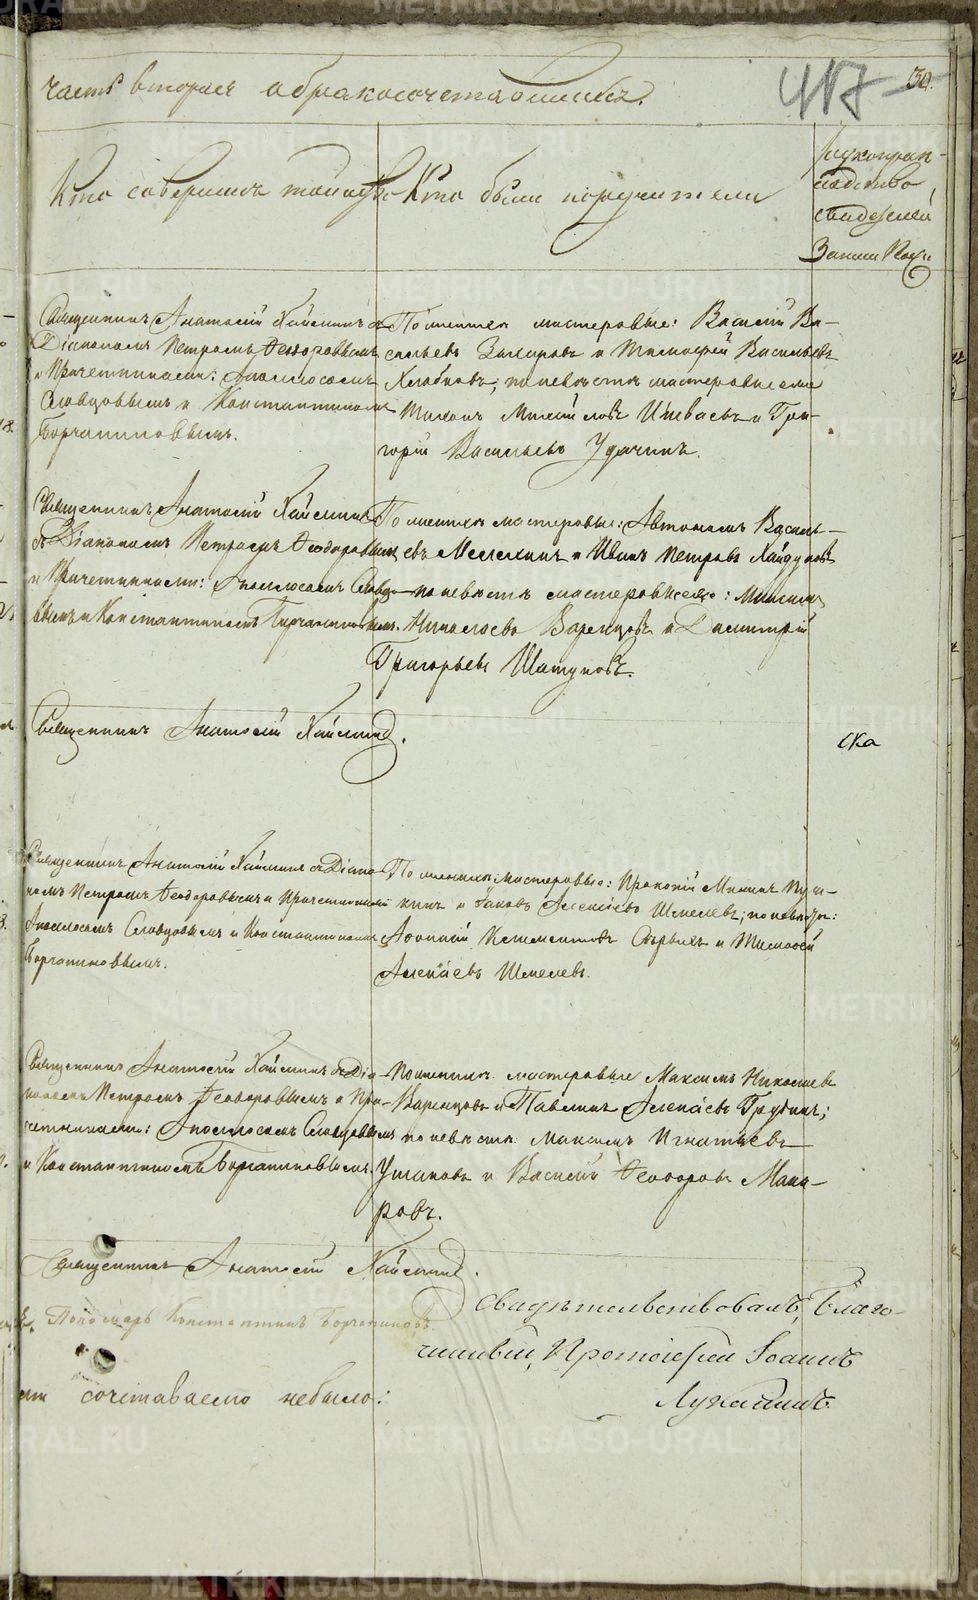 часть вторая о бракосочетавшихся.
417
30.
Кто совершалъ таинство
Кто были поручители
Рукоприк-
ладство
свидетелей
Записи
Священникъ Анатолій Хайминъ съ
Діакономъ Петромъ Ѳеодоровымъ
и Причетниками: Аполлосомъ
Словцовымъ и Константиномъ
Борчаниновымъ.
По женихѣ мастеровые: Василій Ва-
сильевъ Захаровъ и Тимофей Васильевъ
Хлобновъ; по невѣстѣ мастеровые
Михайловъ и Гри-
горій Васильевъ Удачинъ.
Священникъ Анатолій Хайминъ
съ Діакономъ Петромъ Ѳеодоровымъ
и Причетниками: Аполлосомъ Словцо-
вымъ и Константиномъ Борчаниновымъ.
По женихѣ мастеровые: Автономъ Василь-
евъ Мелехинъ и Иванъ Петровъ Хайдуковъ
по невѣстѣ мастеровые: Максимъ
Николаевъ Варенцовъ и Димитрій
Григорьевъ Шатуновъ.
Священникъ Анатолій Хайминъ.
Священникъ Анатолій Хайминъ съ Діако-
номъ Петромъ Ѳеодоровымъ и Причетниками
Аполлосомъ Словцовымъ и Константиномъ
Борчаниновымъ.
По женихѣ мастеровые: Прокопій Мининъ
и Іаковъ Алексіевъ Шмелевъ; по невѣстѣ:
Афонасій Климентовъ и Тимофей
Алексіевъ Шмелевъ.
Священникъ Анатолій Хайминъ съ Діа-
кономъ Петромъ Ѳеодоровымъ и При-
четниками: Аполлосомъ Словцовымъ
и Константиномъ Борчаниновымъ.
По женихѣ мастеровые Максимъ Николаевъ
Варенцовъ и Павелинъ Алексіевъ Грудинъ;
по невѣстѣ: Максимъ Игнатіевъ
Ушаковъ и Василій Ѳеодоровъ Мака-
ровъ.
Священникъ Анатолій Хайминъ.
Пономарь Константинъ Борчаниновъ.
сочетаваемо небыло:
Свидѣтельствовалъ, Благо-
чинный, Протоіерей Іоаннъ
Луканинъ.
METRIKI.GASO-URAL.RU